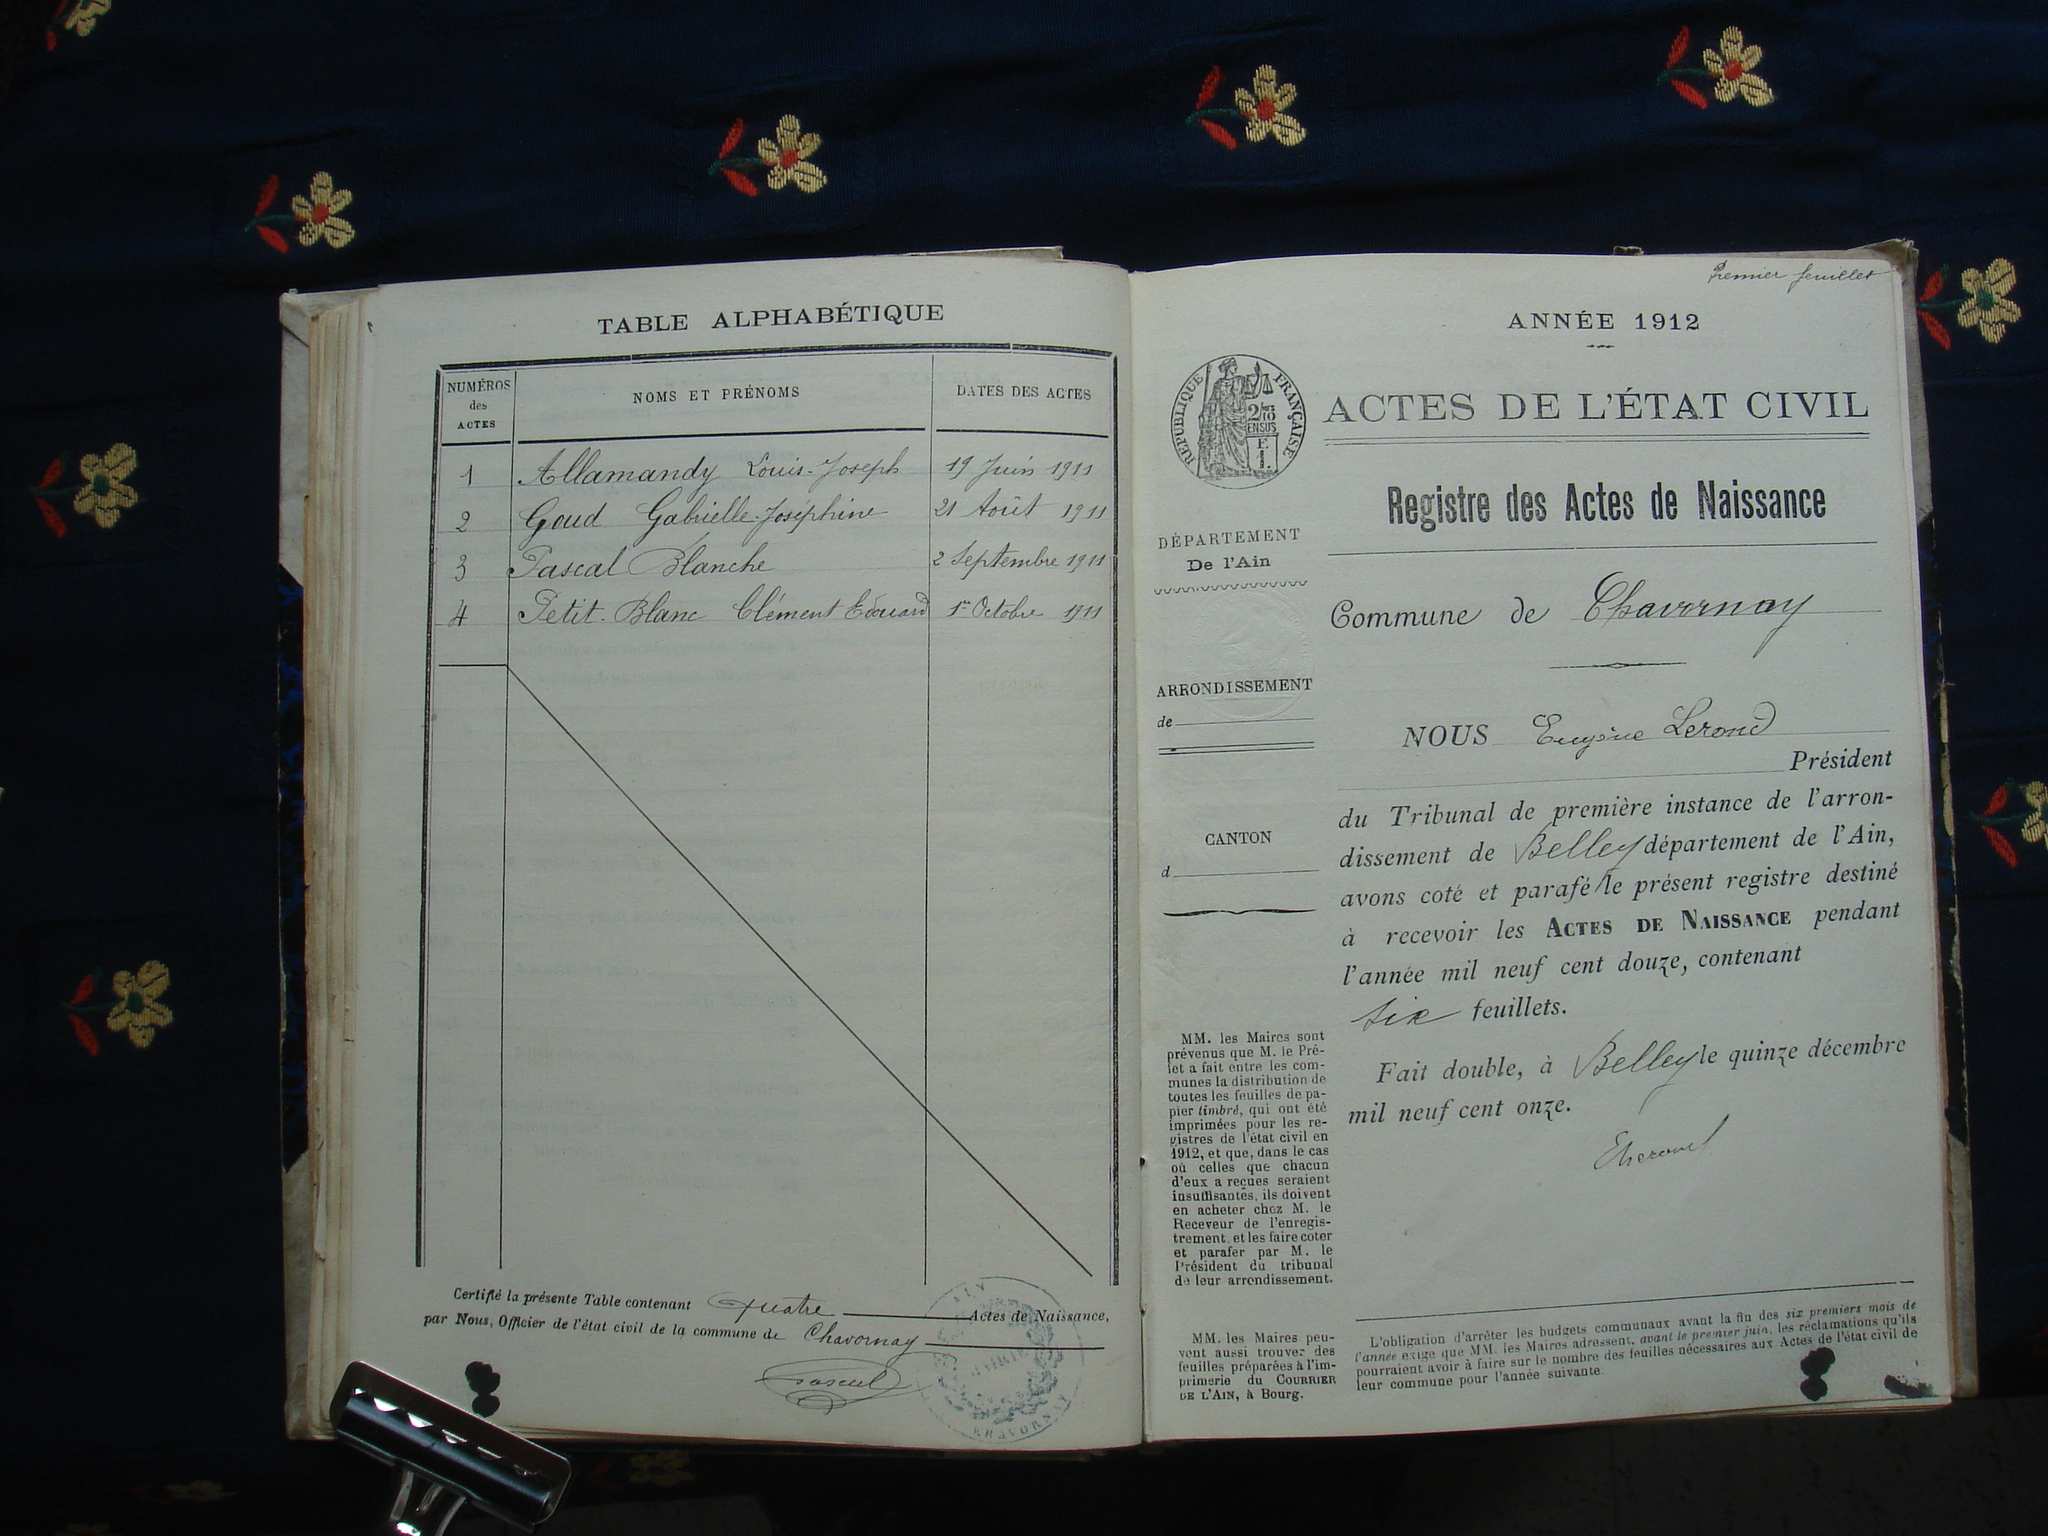 TABLE ALPHABÉTIQUE
NUMÉROS des ACTES NOMS ET PRÉNOMS DATES DES ACTES
1 Allamandy Louis-Joseph 19 Juin 1911
2 Goud Gabrielle-Joséphine 21 Août 1911
3 Pascal Blanche 2 Septembre 1911
4 Petit-Blanc Clément Edouard 1er Octobre 1911
Certifié la présente Table contenant Quatre Actes de Naissance,
par Nous, Officier de l'état civil de la commune de Chavornay
Pascal
AIN
MAIRIE
CHAVORNAY
Premier feuillet
ANNÉE 1912
RÉPUBLIQUE FRANÇAISE
2/10
EN SUS
F.
1.
ACTES DE L'ÉTAT CIVIL
Registre des Actes de Naissance
DÉPARTEMENT
De l'Ain
Commune de Chavornay
ARRONDISSEMENT
de
NOUS Eugène Lerond
Président
du Tribunal de première instance de l'arron-
dissement de Belley département de l'Ain,
avons coté et parafé le présent registre destiné
à recevoir les ACTES DE NAISSANCE pendant
l'année mil neuf cent douze, contenant
six feuillets.
Fait double, à Belley le quinze décembre
mil neuf cent onze.
CANTON
d
MM. les Maires sont
prévenus que M. le Pré-
fet a fait entre les com-
munes la distribution de
toutes les feuilles de pa-
pier timbré, qui ont été
imprimées pour les re-
gistres de l'état civil en
1912, et que, dans le cas
où celles que chacun
d'eux a reçues seraient
insuffisantes, ils doivent
en acheter chez M. le
Receveur de l'enregis-
trement, et les faire coter
et parafer par M. le
Président du tribunal
de leur arrondissement.
MM. les Maires peu-
vent aussi trouver des
feuilles préparées à l'im-
primerie du COURRIER
DE L'AIN, à Bourg.
L'obligation d'arrêter les budgets communaux avant la fin des six premiers mois de
l'année exige que MM. les Maires adressent, avant le premier juin, les réclamations qu'ils
pourraient avoir à faire sur le nombre des feuilles nécessaires aux Actes de l'état civil de
leur commune pour l'année suivante.